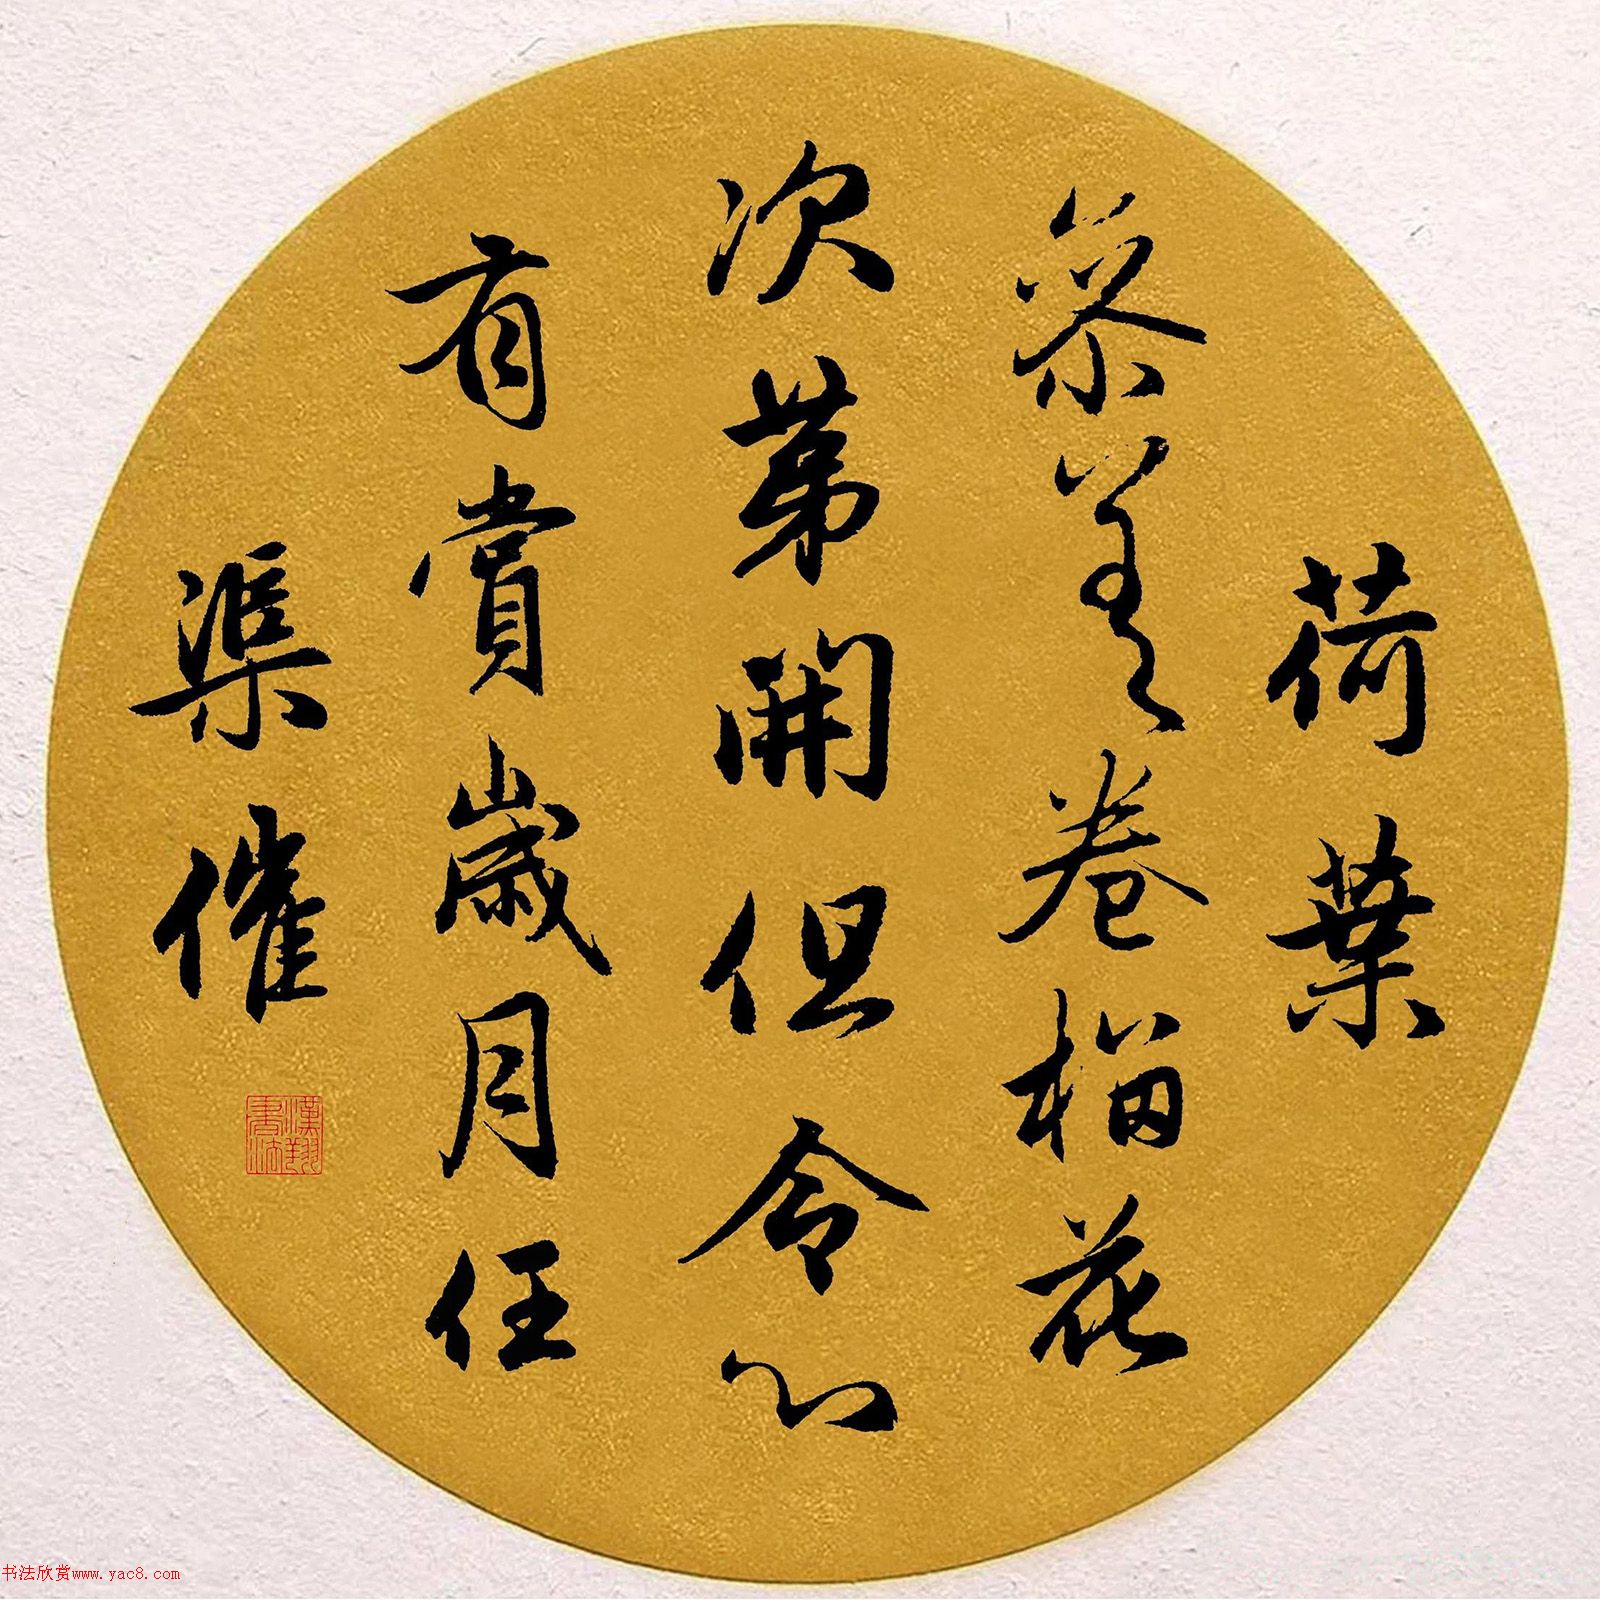 荷葉
參差卷榴花
次第開但令心
有賞歲月任
渠催
漢翔書法
书法欣赏www.yac8.com